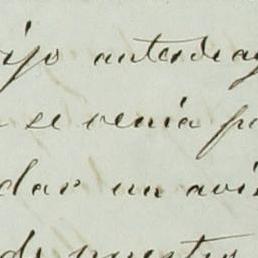 ijo antes de ay
se venia p
dar un avi
de nuestro